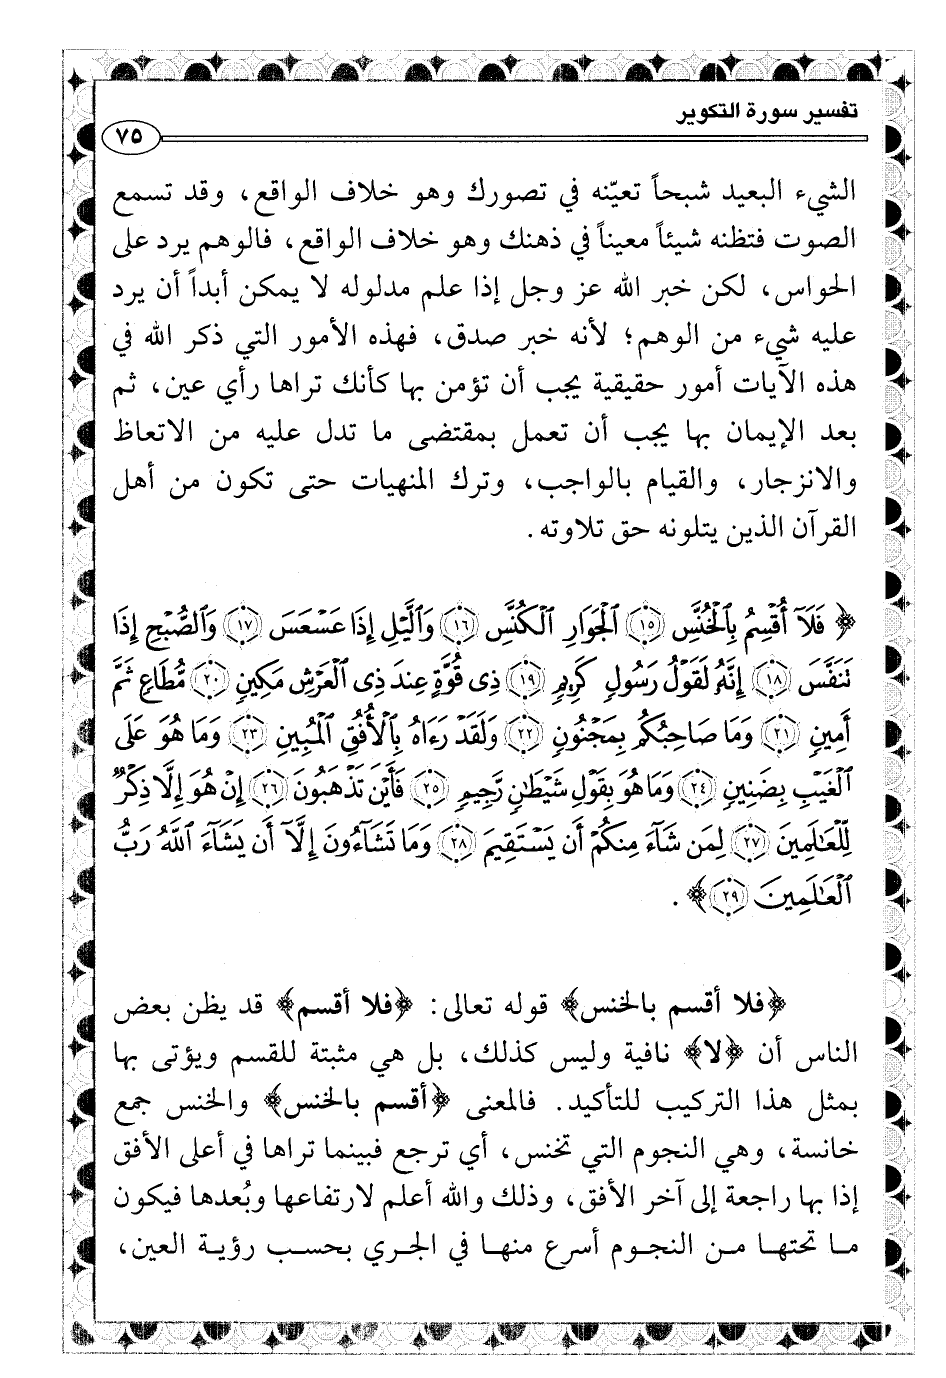 تفسير سورة التكوير
٧٥
الشيء البعيد شبحاً تعيّنه في تصورك وهو خلاف الواقع، وقد تسمع
الصوت فتظنه شيئاً معيناً في ذهنك وهو خلاف الواقع، فالوهم يرد على
الحواس، لكن خبر الله عز وجل إذا علم مدلوله لا يمكن أبداً أن يرد
عليه شيء من الوهم؛ لأنه خبر صدق، فهذه الأمور التي ذكر الله في
هذه الآيات أمور حقيقية يجب أن تؤمن بها كأنك تراها رأي عين، ثم
بعد الإيمان بها يجب أن تعمل بمقتضى ما تدل عليه من الاتعاظ
والانزجار، والقيام بالواجب، وترك المنهيات حتى تكون من أهل
القرآن الذين يتلونه حق تلاوته.
﴿فَلَآ أُقْسِمُ بِٱلْخُنَّسِ ١٥ ٱلْجَوَارِ ٱلْكُنَّسِ ١٦ وَٱلَّيْلِ إِذَا عَسْعَسَ ١٧ وَٱلصُّبْحِ إِذَا
تَنَفَّسَ ١٨ إِنَّهُ لَقَوْلُ رَسُولٍ كَرِيمٍ ١٩ ذِى قُوَّةٍ عِندَ ذِى ٱلْعَرْشِ مَكِينٍ ٢٠ مُّطَاعٍ ثَمَّ
أَمِينٍ ٢١ وَمَا صَاحِبُكُم بِمَجْنُونٍ ٢٢ وَلَقَدْ رَءَاهُ بِٱلْأُفُقِ ٱلْمُبِينِ ٢٣ وَمَا هُوَ عَلَى
ٱلْغَيْبِ بِضَنِينٍ ٢٤ وَمَا هُوَ بِقَوْلِ شَيْطَانٍ رَّجِيمٍ ٢٥ فَأَيْنَ تَذْهَبُونَ ٢٦ إِنْ هُوَ إِلَّا ذِكْرٌ
لِّلْعَٰلَمِينَ ٢٧ لِمَن شَآءَ مِنكُمْ أَن يَسْتَقِيمَ ٢٨ وَمَا تَشَآءُونَ إِلَّآ أَن يَشَآءَ ٱللَّهُ رَبُّ
ٱلْعَٰلَمِينَ ٢٩﴾.
﴿فلا أقسم بالخنس﴾ قوله تعالى: ﴿فلا أقسم﴾ قد يظن بعض
الناس أن ﴿لا﴾ نافية وليس كذلك، بل هي مثبتة للقسم ويؤتى بها
بمثل هذا التركيب للتأكيد. فالمعنى ﴿أقسم بالخنس﴾ والخنس جمع
خانسة، وهي النجوم التي تخنس، أي ترجع فبينما تراها في أعلى الأفق
إذا بها راجعة إلى آخر الأفق، وذلك والله أعلم لارتفاعها وبُعدها فيكون
ما تحتها من النجوم أسرع منها في الجري بحسب رؤية العين،